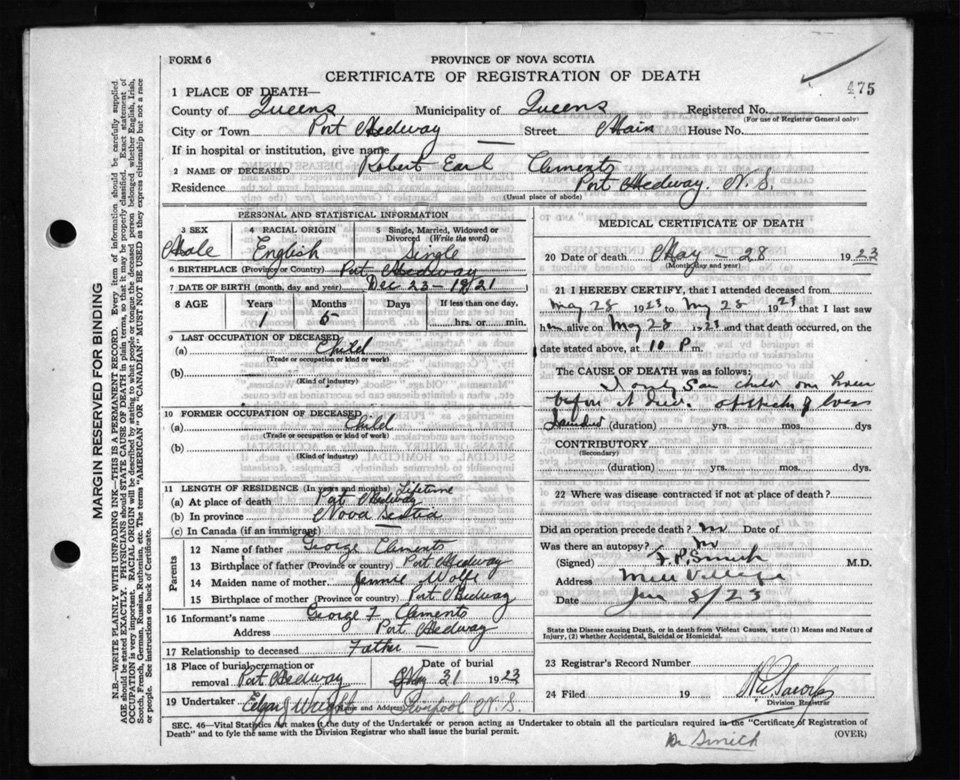 FORM 6
PROVINCE OF NOVA SCOTIA
CERTIFICATE OF REGISTRATION OF DEATH
475
1 PLACE OF DEATH—
County of Queens Municipality of Queens Registered No.
(For use of Registrar General only)
City or Town Port Medway Street Main House No.
If in hospital or institution, give name —
2 NAME OF DECEASED Robert Earl Clements
Residence Port Medway. N. S.
(Usual place of abode)
PERSONAL AND STATISTICAL INFORMATION
3 SEX 4 RACIAL ORIGIN 5 Single, Married, Widowed or Divorced (Write the word)
Male English Single
6 BIRTHPLACE (Province or Country) Port Medway
7 DATE OF BIRTH (month, day and year) Dec 23 – 1921
8 AGE Years Months Days If less than one day,
1 5 hrs. or min.
9 LAST OCCUPATION OF DECEASED
(a) Child
(Trade or occupation or kind of work)
(b)
(Kind of industry)
10 FORMER OCCUPATION OF DECEASED
(a) Child
(Trade or occupation or kind of work)
(b)
(Kind of industry)
11 LENGTH OF RESIDENCE (In years and months) Lifetime
(a) At place of death Port Medway
(b) In province Nova Scotia
(c) In Canada (if an immigrant) —
Parents
12 Name of father George Clements
13 Birthplace of father (Province or country) Port Medway
14 Maiden name of mother Jennie Wolfe
15 Birthplace of mother (Province or country) Port Medway
16 Informant's name George F Clements
Address Port Medway
17 Relationship to deceased Father —
18 Place of burial, cremation or removal Port Medway Date of burial May 31 1923
19 Undertaker Edgar J Wright Name and Address Liverpool N. S.
MEDICAL CERTIFICATE OF DEATH
20 Date of death May – 28 1923
(Month, day and year)
21 I HEREBY CERTIFY, that I attended deceased from
May 28 1923 to May 28 1923 that I last saw
him alive on May 28 1923 and that death occurred, on
date stated above, at 10 P m.
The CAUSE OF DEATH was as follows:
I only saw child one hour
before it died.
(duration) yrs. mos. dys
CONTRIBUTORY
(Secondary)
(duration) yrs. mos. dys.
22 Where was disease contracted if not at place of death?
Did an operation precede death? no Date of
Was there an autopsy? no
(Signed) F. P. Smith M.D.
Address Mill Village
Date Jun 5/23
State the Disease causing Death, or in death from Violent Causes, state (1) Means and Nature of
Injury, (2) whether Accidental, Suicidal or Homicidal.
23 Registrar's Record Number
24 Filed 19
Division Registrar
SEC. 46—Vital Statistics Act makes it the duty of the Undertaker or person acting as Undertaker to obtain all the particulars required in the "Certificate of Registration of
Death" and to fyle the same with the Division Registrar who shall issue the burial permit.
(OVER)
Dr Smith
MARGIN RESERVED FOR BINDING
N.B.—WRITE PLAINLY WITH UNFADING INK—THIS IS A PERMANENT RECORD. Every item of information should be carefully supplied.
AGE should be stated EXACTLY. PHYSICIANS should STATE CAUSE OF DEATH in plain terms, so that it may be properly classified. Exact statement of
OCCUPATION is very important. RACIAL ORIGIN will be described by stating to what people or tongue the deceased person belonged whether English, Irish,
Scotch, French, German, Russian, Ruthenian, etc. The terms "AMERICAN" OR "CANADIAN" MUST NOT BE USED as they express citizenship but not a race
or people. See instructions on back of Certificate.